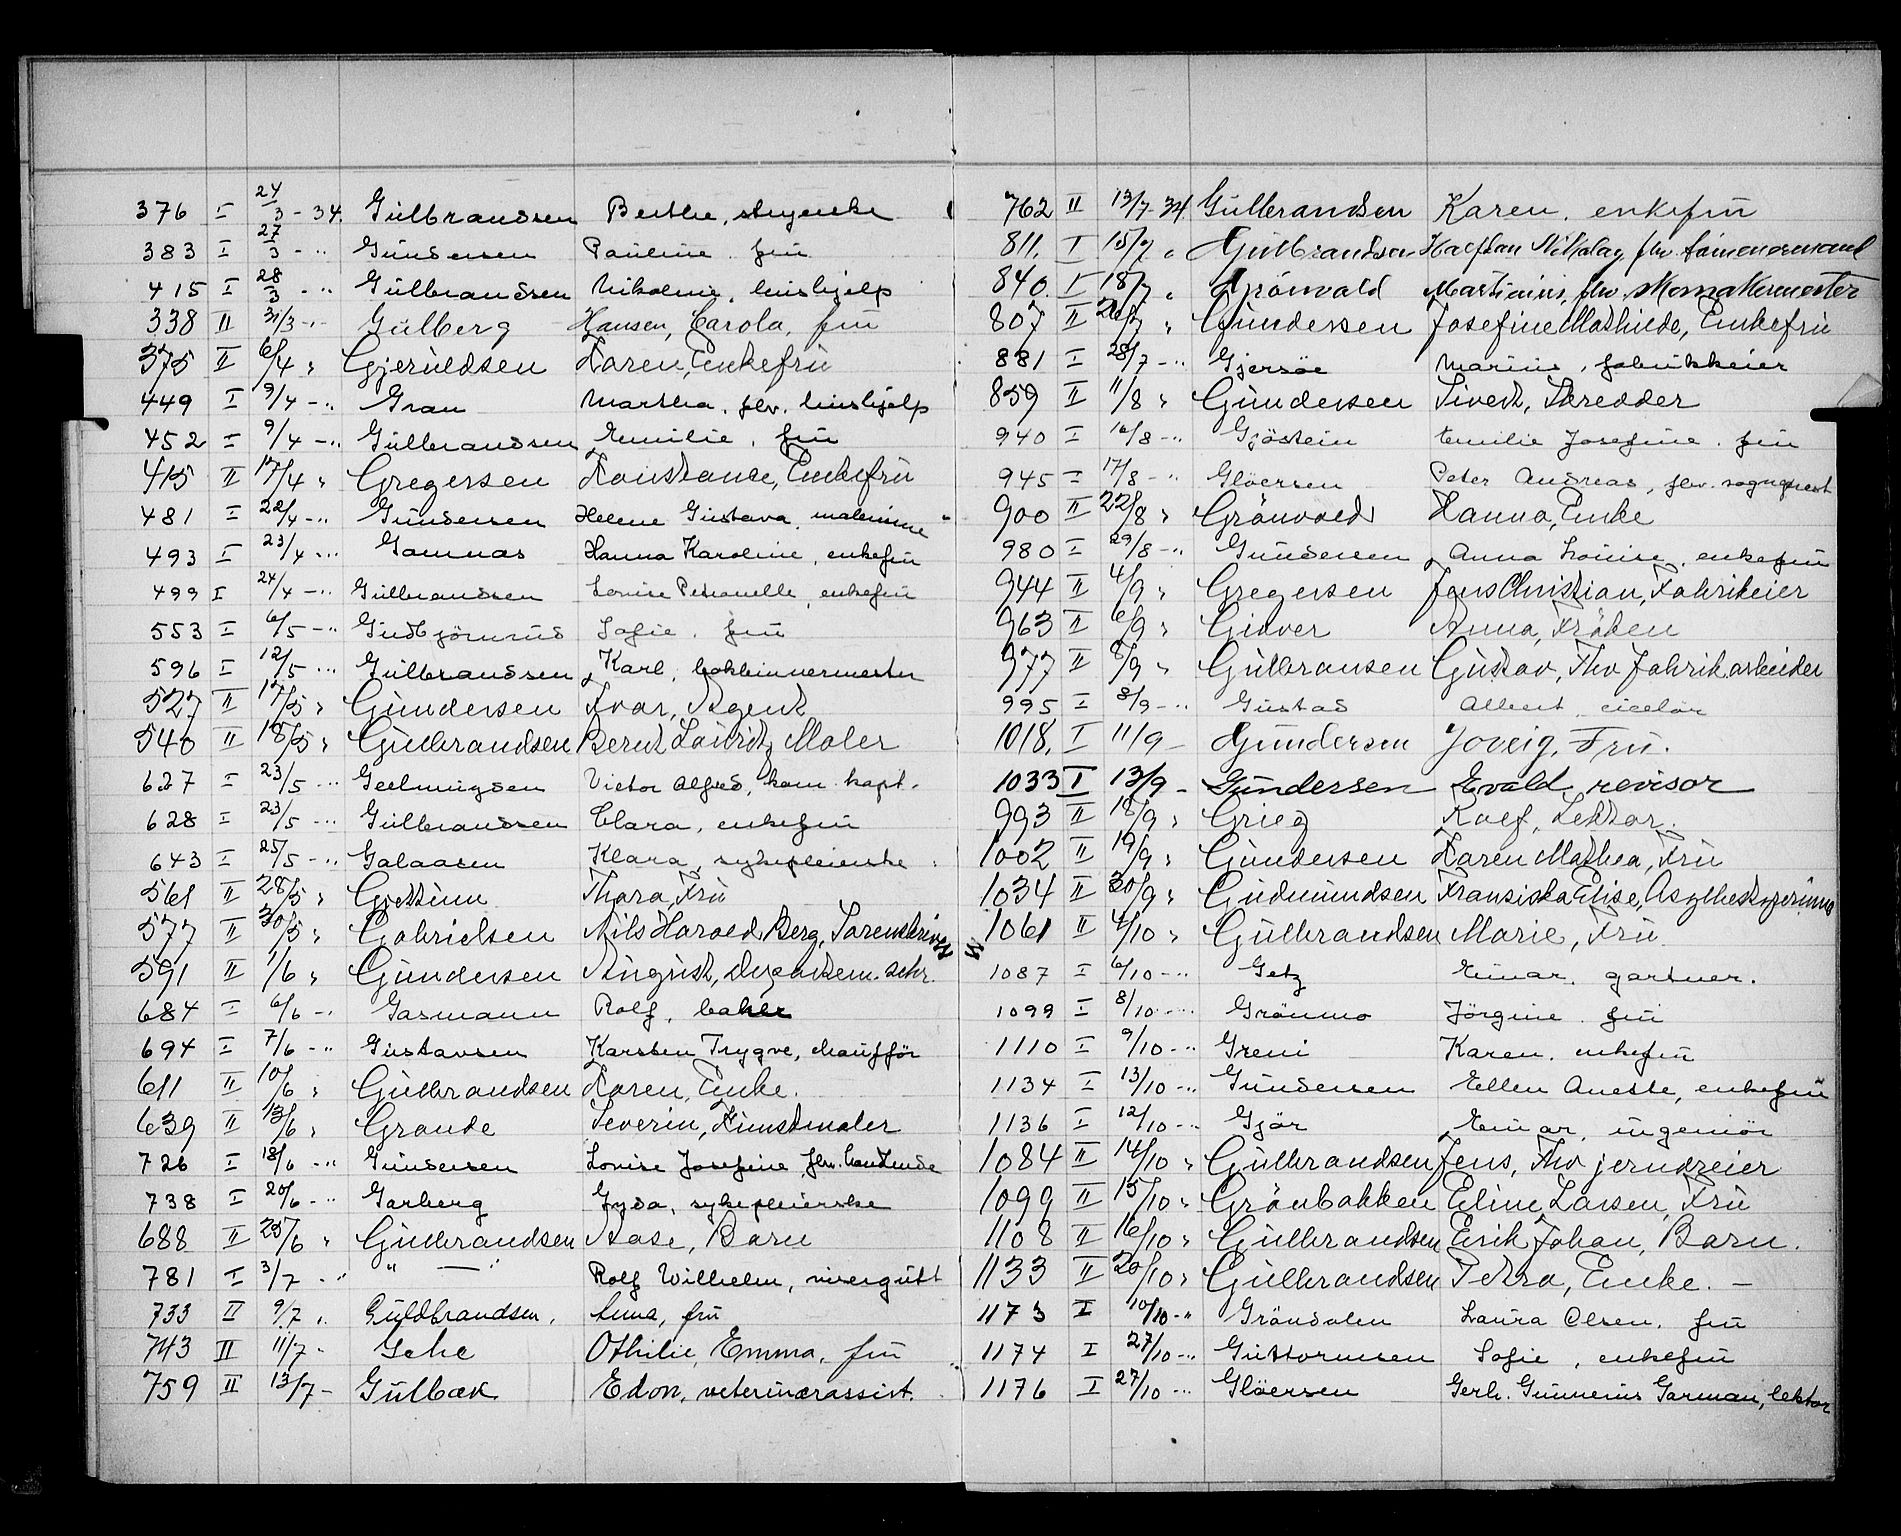 376 I 24/3-34. Gulbrandsen Berthe, strykerske
383 I 27/3 - " Gundersen Pauline. fru
415 I 28/3 - " Gulbrandsen Nikoline, hushjelp
338 II 31/3 - " Gulberg Hansen, Carola, fru
375 II 6/4 " Gjerüldsen Karen, Enkefru
449 I 9/4 - " Gran Martha. flv. hushjelp
452 I 9/4 - " Gulbrandsen Emilie, fru
415 II 17/4 " Gregersen Konstance, Enkefru
481 I 22/4 - " Gundersen Helene Gustava, malerinne
493 I 23/4 - " Gamnas Hanna Karoline, enkefru
499 I 24/4 - " Gulbrandsen Lovise Petronelle, enkefru
553 I 6/5 - " Gudbjörnrud Sofie. fru
596 I 12/5 - " Gulbrandsen Karl, bokbinnermester
527 II 17/5 " Gundersen Ivar, Agent
540 II 18/5 " Gulbrandsen Bernt Lauritz, Maler
627 I 23/5 - " Geelmuyden Victor Alfred, kom. kapt.
628 I 23/5 - " Gulbrandsen Clara, enkefru
643 I 25/5 - " Galaasen Klara, sykepleierske
561 II 28/5 " Thora, Fru
577 II 30/5 " Gabrielsen Nils Harald Berg, Sorenskriver
591 II 1/6 " Gundersen August, departem. sekr.
684 I 6/6 - " Gasmann Rolf, baker
694 I 7/6 - " Gustavsen Karsten Trygve, chaufför
611 II 10/6 " Gulbrandsen Karen, Enke.
639 II 13/6 " Grande Severin, Kunstmaler
726 I 18/6 - " Gundersen Lovise Josefine, flv. handlende
738 I 20/6 - " Garberg Gyda, sykepleierske
688 II 25/6 " Gulbrandsen Aase, Barn
781 I 3/7 - " " — " Rolf Wilhelm, visergutt
733 II 9/7 " Guldbrandsen, Anna, fru
743 II 11/7 - Gehe Othilie, Emma, fru
759 II 13/7 - Gulbæk Edon, veterinærassist.
762 II 13/7-34 Gulbrandsen Karen, enkefru
811. I 15/7 " Gulbrandsen Halfdan Nikolay, flv. tömmermand
840. I 18/7 " Grönvold Martinius, flv. skomakermester
807 II 20/7 " Gundersen Josefine Mathilde, Enkefru
881 I 28/7 - " Gjersöe Marius, fabrikkeier
859 II 11/8 " Gundersen Sivert, Skredder
940 I 16/8 - " Gjöstein Emilie Josefine. fru
945 I 17/8 - " Glöersen Peter Andreas, flv. sogneprest
900 II 22/8 " Grönvold Hanna, Enke
980 I 29/8 - " Gundersen Anna Lovise, enkefru
944 II 4/9 " Gregersen Jens Christian, Fabrikeier
963 II 6/9 " Giæver Anna, Fröken
977 II 8/9 " Gulbransen Gustav, Fhv Fabrikarbeider
995 I 8/9 - " Gustad Albert, ciselör
1018. I 11/9 - Gundersen Joveig, Fru.
1033 I 13/9 - Gundersen Evald, revisor
993 II 18/9 " Grieg Rolf, Lektor.
1002 II 19/9 " Gundersen Karen Mathea, Fru
1034 II 30/9 " Gudmundsen Fransiska Elise, Asylbestyrerinne
1061 II 4/10 " Gulbrandsen Marie, Fru
1087 I 6/10 - " Getz Einar. gartner.
1099 I 8/10 - " Grönmo Jörgine. fru
1110 I 9/10 - " Greni Karen. enkefru
1134 I 13/10 - " Gundersen Ellen Anette, enkefru
1136 I 12/10 - " Gjör Einar, ingeniör
1084 II 14/10 " Gulbrandsen Jens, Fhv jerndreier
1099 II 15/10 " Grönbakken Eline Larsen, Fru
1108 II 16/10 " Gulbrandsen Erik Johan, Barn.
1133 II 20/10 " Gulbrandsen Petra, Enke. -
1173 I 10/10 - " Gröndalen Laura Olsen. fru
1174 I 27/10 - " Guttormsen Sofie, enkefru
1176 I 27/10 - " Glöersen Gerh. Gunnerius Garman, lektor